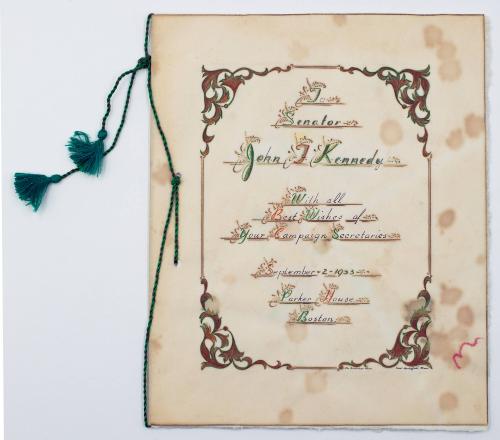 To
Senator
John F Kennedy
With all
Best Wishes of
Your Campaign Secretaries
September-2-1953
Parker House
Boston